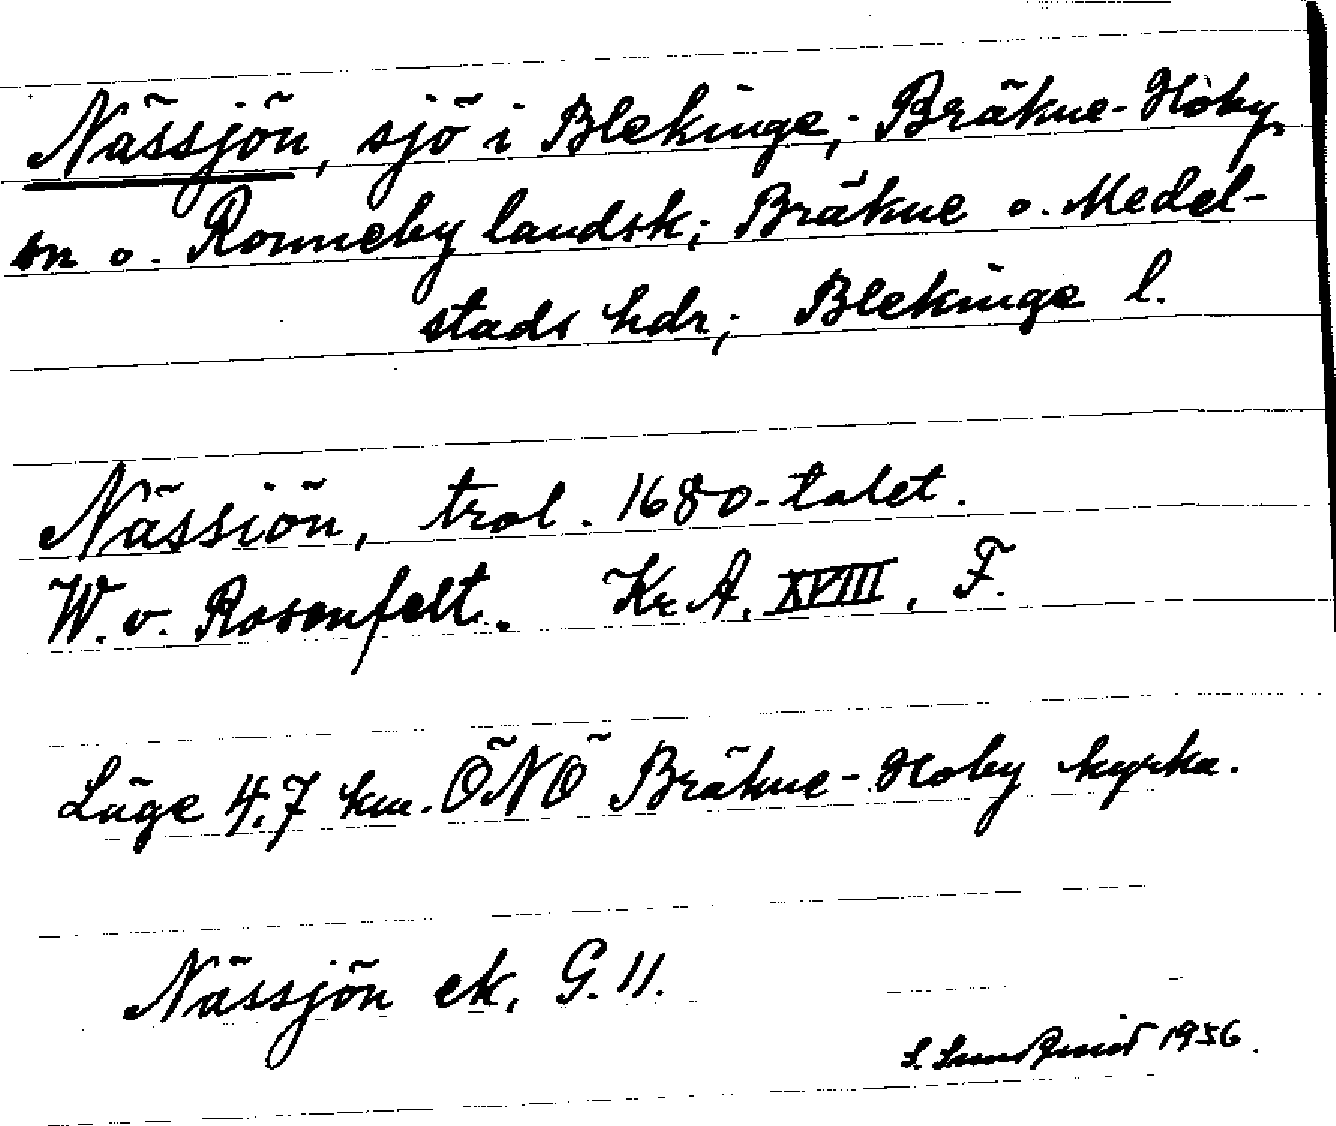 Nässjön, sjö i Blekinge; Bräkne-Hoby
sn o. Ronneby landsk; Bräkne o. Medel-
stads hdr; Blekinge l.
Nässiön, trol. 1680-talet.
W. v. Rosenfelt. Kr A. XVIII, F.
Läge 4.7 km. ÖNÖ Bräkne-Hoby kyrka.
Nässjön ek. G. 11.
S. Lundqvist 1956.